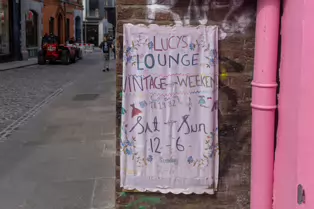 LUCY'S
LOUNGE
VINTAGE WEEKEN
Sat Sun
12-6